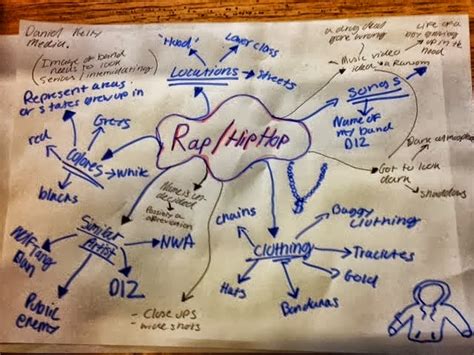 Daniel Kelly
Media.
(Image of band
needs to look
serious / intimidating)
"Hood"
Lower class
Locations
Streets
a drug deal
gone wrong
Life of a
boy growing
up in the
hood
Music video
idea
a Ransom
Songs
Name of
my band
D12
Represent areas
or states grew up in
Greys
red
Colores
white
blacks
Rap/HipHop
Got to look
dark
shadows
Name is un-
decided
Possibly a
abbreviation
Similar
Artist
NWA
Wu-Tang
Clan
D12
Public
enemy
- Close ups
- wide shots
chains
Clothing
Baggy
Clothing
Traciutes
Gold
Hats
Bandanas